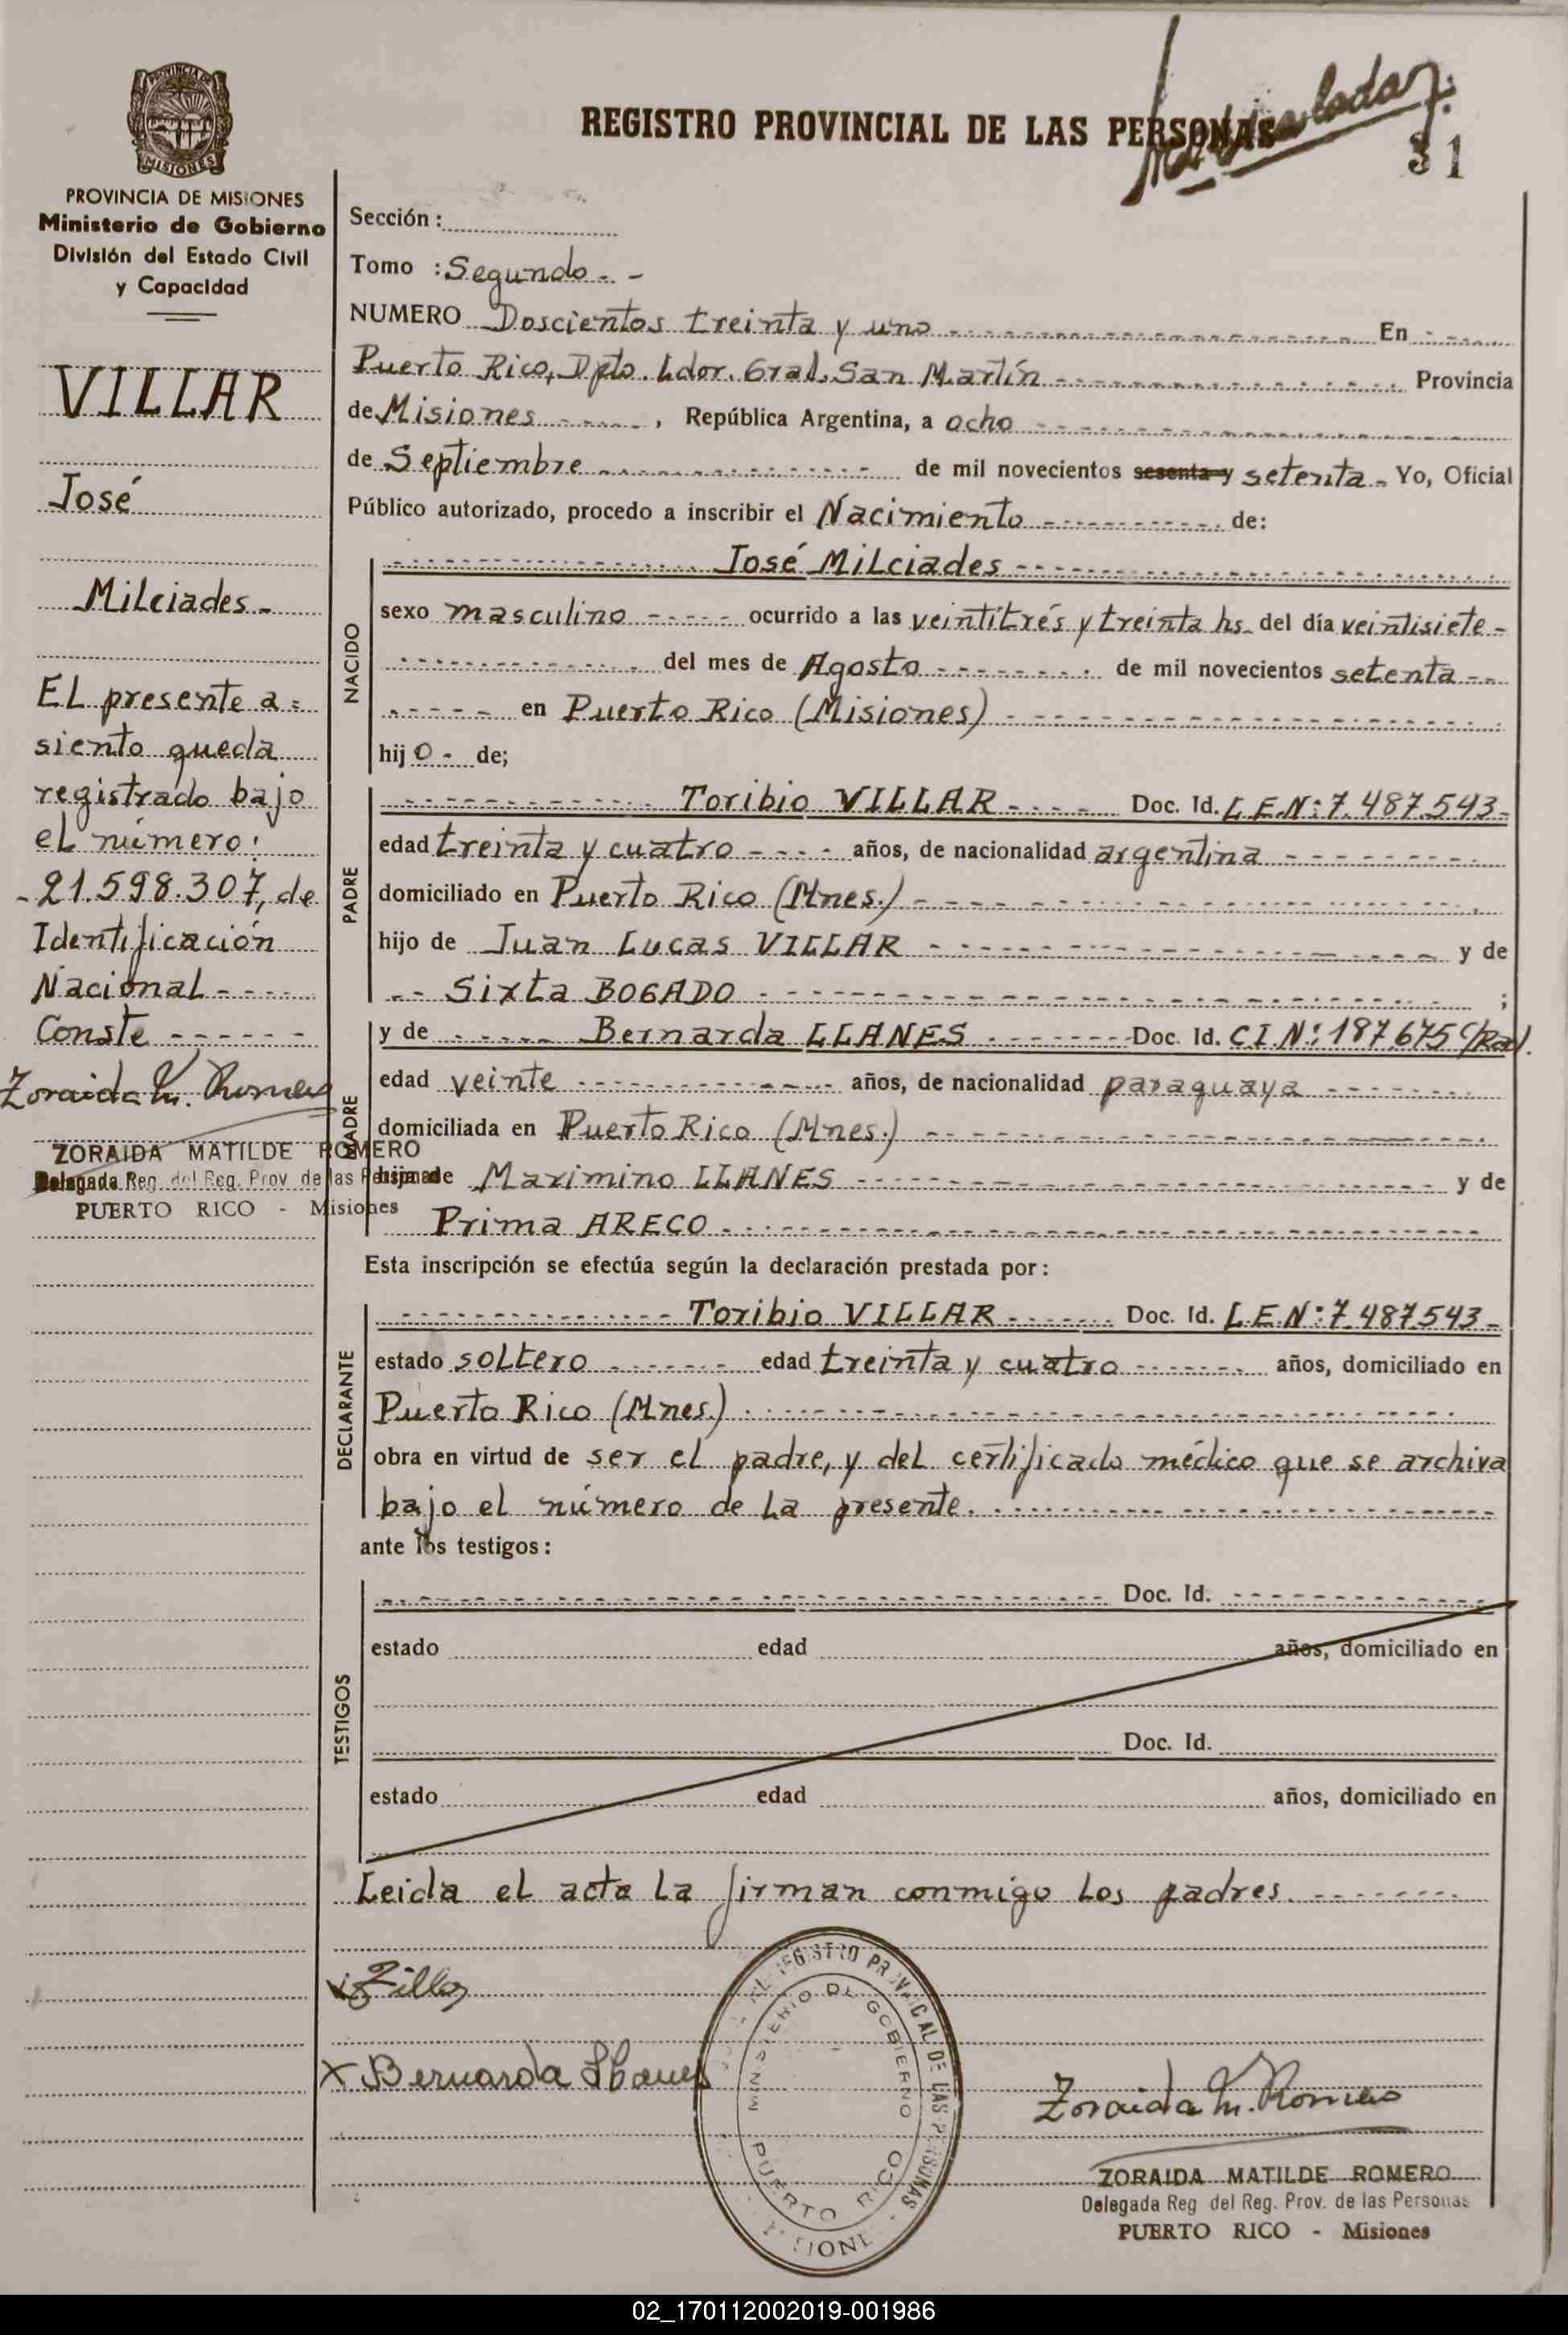 REGISTRO PROVINCIAL DE LAS PERSONAS
31
PROVINCIA DE MISIONES
MISIONES
PROVINCIA DE MISIONES
Ministerio de Gobierno
División del Estado Civil
y Capacidad
VILLAR
José
Milciades -
El presente a=
siento queda
registrado bajo
el número:
-21.598.307, de
Identificación
Nacional - - - -
Conste - - - - - -
Zoraida M. Romero
ZORAIDA MATILDE ROMERO
Delegada Reg. del Reg. Prov. de las Personas
PUERTO RICO - Misiones
Sección :
Tomo : Segundo - -
NUMERO Doscientos treinta y uno En
Puerto Rico, Dpto. Ldor. Gral. San Martín Provincia
de Misiones , República Argentina, a ocho
de Septiembre de mil novecientos sesenta y setenta - Yo, Oficial
Público autorizado, procedo a inscribir el Nacimiento de:
NACIDO
José Milciades
sexo masculino ocurrido a las veintitrés y treinta hs. del día veintisiete -
del mes de Agosto de mil novecientos setenta - -
en Puerto Rico (Misiones)
hijo - de;
PADRE
Toribio VILLAR Doc. Id. L.E.N: 7.487.543-
edad treinta y cuatro años, de nacionalidad argentina
domiciliado en Puerto Rico (Mnes.)
hijo de Juan Lucas VILLAR y de
Sixta BOGADO ;
MADRE
y de Bernarda LLANES Doc. Id. C.I.N: 187.675
edad veinte años, de nacionalidad paraguaya
domiciliada en Puerto Rico (Mnes.)
hija de Maximino LLANES y de
Prima ARECO
Esta inscripción se efectúa según la declaración prestada por:
DECLARANTE
Toribio VILLAR Doc. Id. L.E.N: 7.487.543-
estado soltero edad treinta y cuatro años, domiciliado en
Puerto Rico (Mnes.)
obra en virtud de ser el padre, y del certificado médico que se archiva
bajo el número de la presente.
ante los testigos:
TESTIGOS
Doc. Id.
estado edad años, domiciliado en
Doc. Id.
estado edad años, domiciliado en
Leida el acta la firman conmigo los padres.
X Bernarda Llanes
REGISTRO PROVINCIAL DE LAS PERSONAS
MINISTERIO DE GOBIERNO
PUERTO RICO
MISIONES
Zoraida M. Romero
ZORAIDA MATILDE ROMERO
Delegada Reg del Reg. Prov. de las Personas
PUERTO RICO - Misiones
02_170112002019-001986